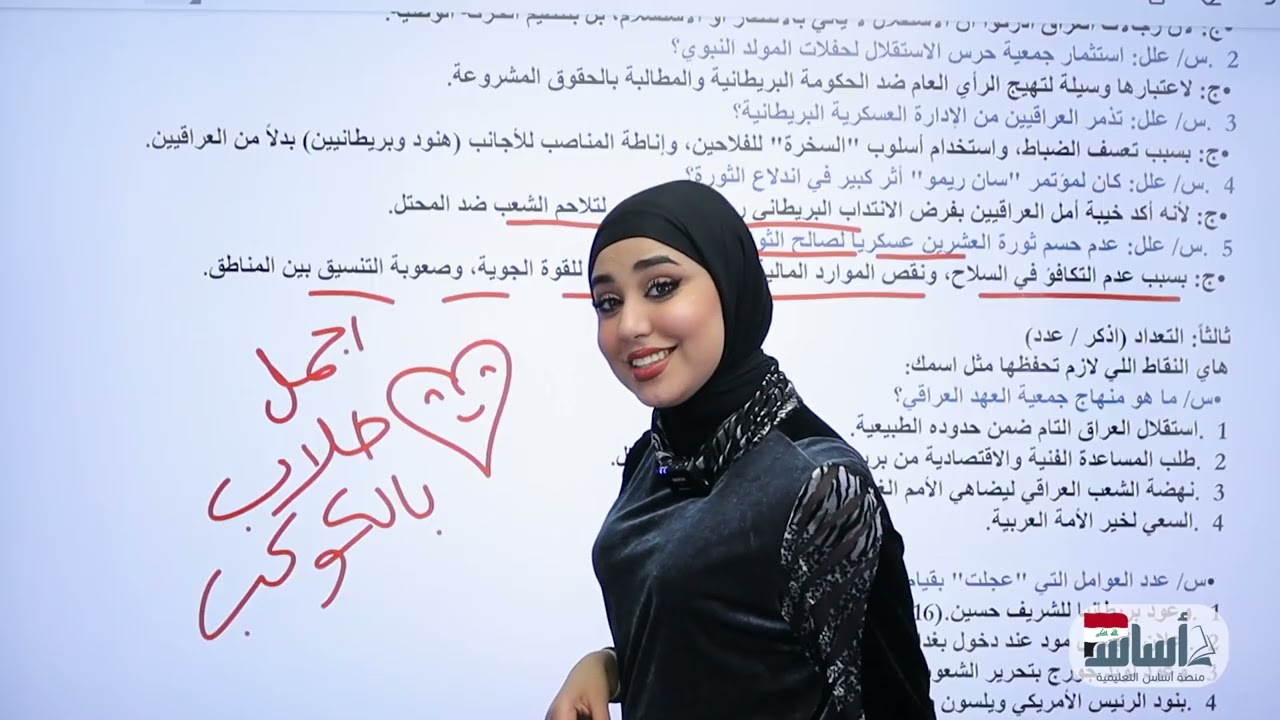 •ج: لأن رجالات العراق أدركوا أن الاستقلال لا يأتي بالانتظار أو الاستسلام، بل بتنظيم الحركة الوطنية.
2 .س/ علل: استثمار جمعية حرس الاستقلال لحفلات المولد النبوي؟
•ج: لاعتبارها وسيلة لتهيج الرأي العام ضد الحكومة البريطانية والمطالبة بالحقوق المشروعة.
3 .س/ علل: تذمر العراقيين من الإدارة العسكرية البريطانية؟
•ج: بسبب تعسف الضباط، واستخدام أسلوب "السخرة" للفلاحين، وإناطة المناصب للأجانب (هنود وبريطانيين) بدلاً من العراقيين.
4 .س/ علل: كان لمؤتمر "سان ريمو" أثر كبير في اندلاع الثورة؟
•ج: لأنه أكد خيبة أمل العراقيين بفرض الانتداب البريطاني لتلاحم الشعب ضد المحتل.
5 .س/ علل: عدم حسم ثورة العشرين عسكريا لصالح
•ج: بسبب عدم التكافؤ في السلاح، ونقص الموارد المالية للقوة الجوية، وصعوبة التنسيق بين المناطق.
ثالثاً: التعداد (اذكر / عدد)
هاي النقاط اللي لازم تحفظها مثل اسمك:
•س/ ما هو منهاج جمعية العهد العراقي؟
1 .استقلال العراق التام ضمن حدوده الطبيعية.
2 .طلب المساعدة الفنية والاقتصادية من
3 .نهضة الشعب العراقي ليضاهي الأمم
4 .السعي لخير الأمة العربية.
•س/ عدد العوامل التي "عجلت" بقيام
1 .وعود بريطانيا للشريف حسين.
2 مود عند دخول
3 جورج بتحرير
4 .بنود الرئيس الأمريكي ويلسون
اجمل
طلاب
بالكوكب
أساس
منصة أساس التعليمية